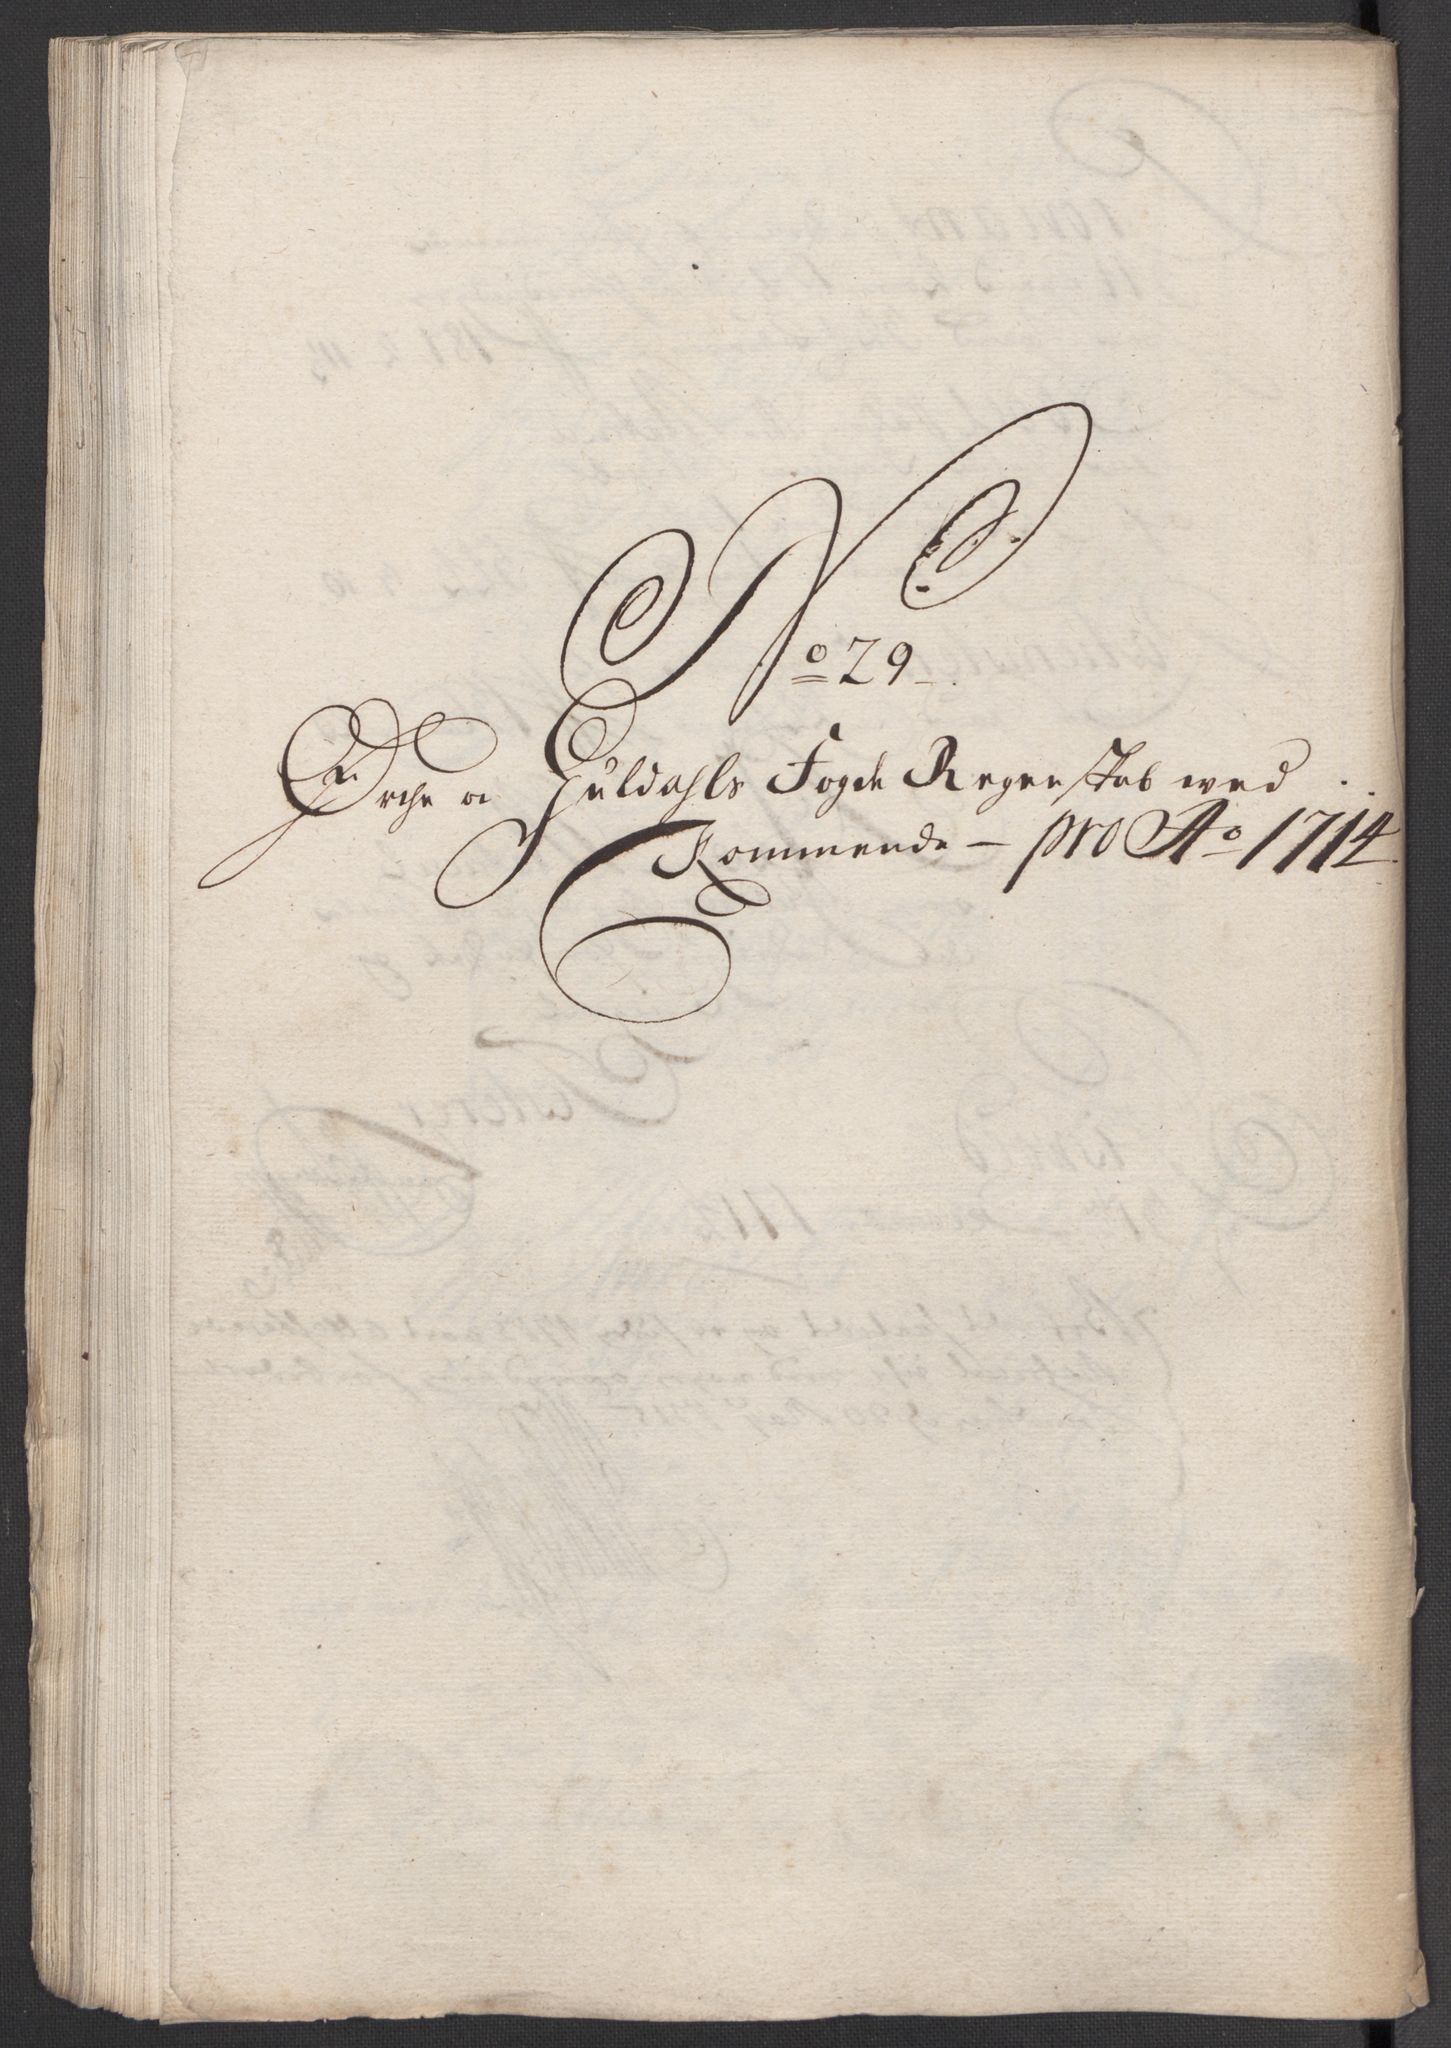 No 29
Orche oc Guldahls Fogde Regenskab wed
Kommende – pro Ao 1714